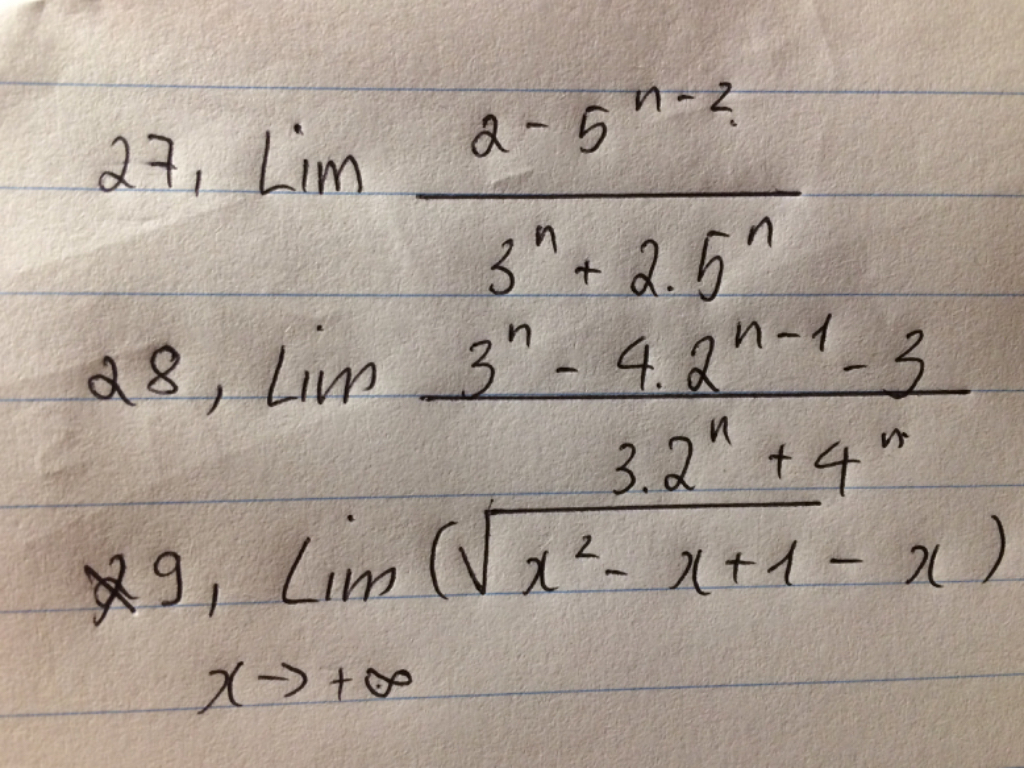 27, Lim \frac{2 - 5^{n-2}}{3^n + 2.5^n}
28, Lim \frac{3^n - 4.2^{n-1} - 3}{3.2^n + 4^n}
29, Lim (\sqrt{x^2 - x + 1} - x)
x -> +∞